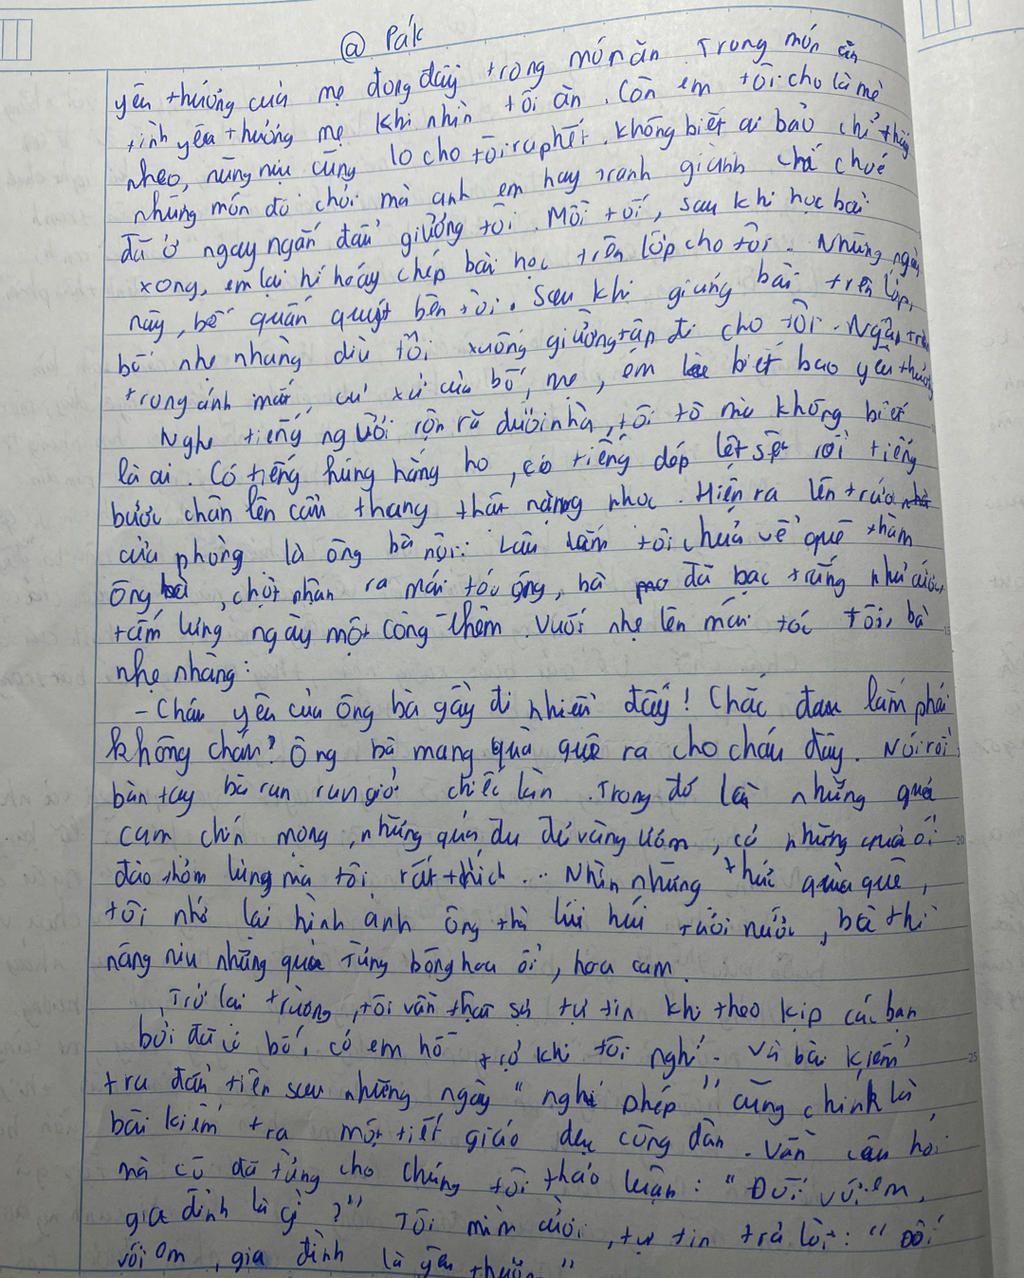 @ Pák
yêu thương của mẹ đong đầy trong món ăn. Trong món ăn
tình yêu thương mẹ khi nhìn tôi ăn. Còn em tôi cho là mè
nheo, nũng nịu cũng lo cho tôi ra phết. Không biết ai bảo chỉ thấy
những món đồ chơi mà anh em hay tranh giành, chí choé
đã ở ngay ngăn đầu giường tôi. Mỗi tối, sau khi học bài
xong, em lại hí hoáy chép bài học trên lớp cho tôi. Những ngày
này, bố quấn quýt bên tôi. Sau khi giảng bài trên lớp,
bố nhẹ nhàng dìu tôi xuống giường tập đi cho tôi. Ngập tràn
trong ánh mắt, cư xử của bố, mẹ, em là biết bao yêu thương
Nghe tiếng người rộn rã dưới nhà, tôi tò mò không biết
là ai. Có tiếng húng hắng ho, có tiếng dép lệt sệt rồi tiếng
bước chân lên cầu thang thật nặng nhọc. Hiện ra lên trước
cửa phòng là ông bà nội. Lâu lắm tôi chưa về quê thăm
ông bà, chợt nhận ra mái tóc ông, bà đã bạc trắng như cước,
tấm lưng ngày một còng thêm. Vuốt nhẹ lên mái tóc tôi, bà
nhẹ nhàng:
- Cháu yêu của ông bà gầy đi nhiều đấy! Chắc đau lắm phải
không cháu? Ông bà mang quà quê ra cho cháu đây. Nói rồi
bàn tay bà run run giở chiếc làn. Trong đó là những quả
cam chín mọng, những quả đu đủ vàng ươm, có những quả ổi
đào thơm lừng mà tôi rất thích... Nhìn những thức quà quê,
tôi nhớ lại hình ảnh ông thì lúi húi tưới nước, bà thì
nâng niu những quả từng bông hoa ổi, hoa cam.
Trở lại trường, tôi vẫn thật sự tự tin khi theo kịp các bạn
bởi đã có bố, có em hỗ trợ khi tôi nghỉ. Và bài kiểm
tra đầu tiên sau những ngày "nghỉ phép" cũng chính là
bài kiểm tra một tiết giáo dục công dân. Vẫn câu hỏi
mà cô đã từng cho chúng tôi thảo luận: "Đối với em,
gia đình là gì?" Tôi mỉm cười, tự tin trả lời: "Đối
với em, gia đình là yêu thương"